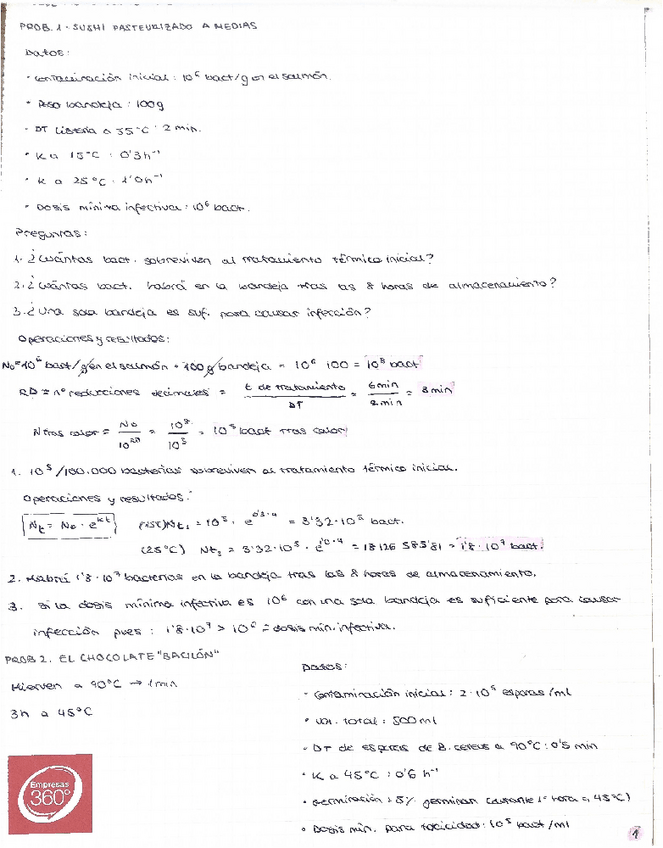 PROB. 1 - SUSHI PASTEURIZADO A MEDIAS
Datos:
· Contaminación inicial: 10⁶ bact/g en el salmón.
· Peso bandeja: 100g
· DT Listeria a 55°C: 2 min.
· K a 15°C: 0'3h⁻¹
· K a 25°C: 1'0h⁻¹
· Dosis mínima infectiva: 10⁶ bact.
Preguntas:
1. ¿Cuántas bact. sobreviven al tratamiento térmico inicial?
2. ¿Cuántas bact. habrá en la bandeja tras las 8 horas de almacenamiento?
3. ¿Una sola bandeja es suf. para causar infección?
Operaciones y resultados:
N₀ = 10⁶ bact/g en el salmón · 100g bandeja = 10⁶ · 100 = 10⁸ bact
RD = nº reducciones decimales = t de tratamiento / DT = 6 min / 2 min = 3 min
N tras calor = N₀ / 10ᴿᴰ = 10⁸ / 10³ = 10⁵ bact tras calor
1. 10⁵/100.000 bacterias sobreviven al tratamiento térmico inicial.
Operaciones y resultados:
Nt = N₀ · eᵏᵗ (15°C) Nt₁ = 10⁵ · e^0'3·4 = 3'32·10⁵ bact.
(25°C) Nt₂ = 3'32·10⁵ · e^1'0·4 = 18126 585'81 = 1'8·10⁷ bact.
2. Habrá 1'8·10⁷ bacterias en la bandeja tras las 8 horas de almacenamiento.
3. Si la dosis mínima infectiva es 10⁶ con una sola bandeja es suficiente para causar
infección pues: 1'8·10⁷ > 10⁶ = dosis min. infectiva.
PROB 2. EL CHOCOLATE "BACILÓN"
Hierven a 90°C → 1 min
3h a 45°C
Datos:
· Contaminación inicial: 2·10⁴ esporas/ml
· Vol. total: 500ml
· DT de esporas de B. cereus a 90°C: 0'5 min
· K a 45°C: 0'6 h⁻¹
· Germinación: 5% germinan durante 1ª hora a 45°C)
· Dosis min. para toxicidad: 10⁵ bact/ml
Empresas
360°
1